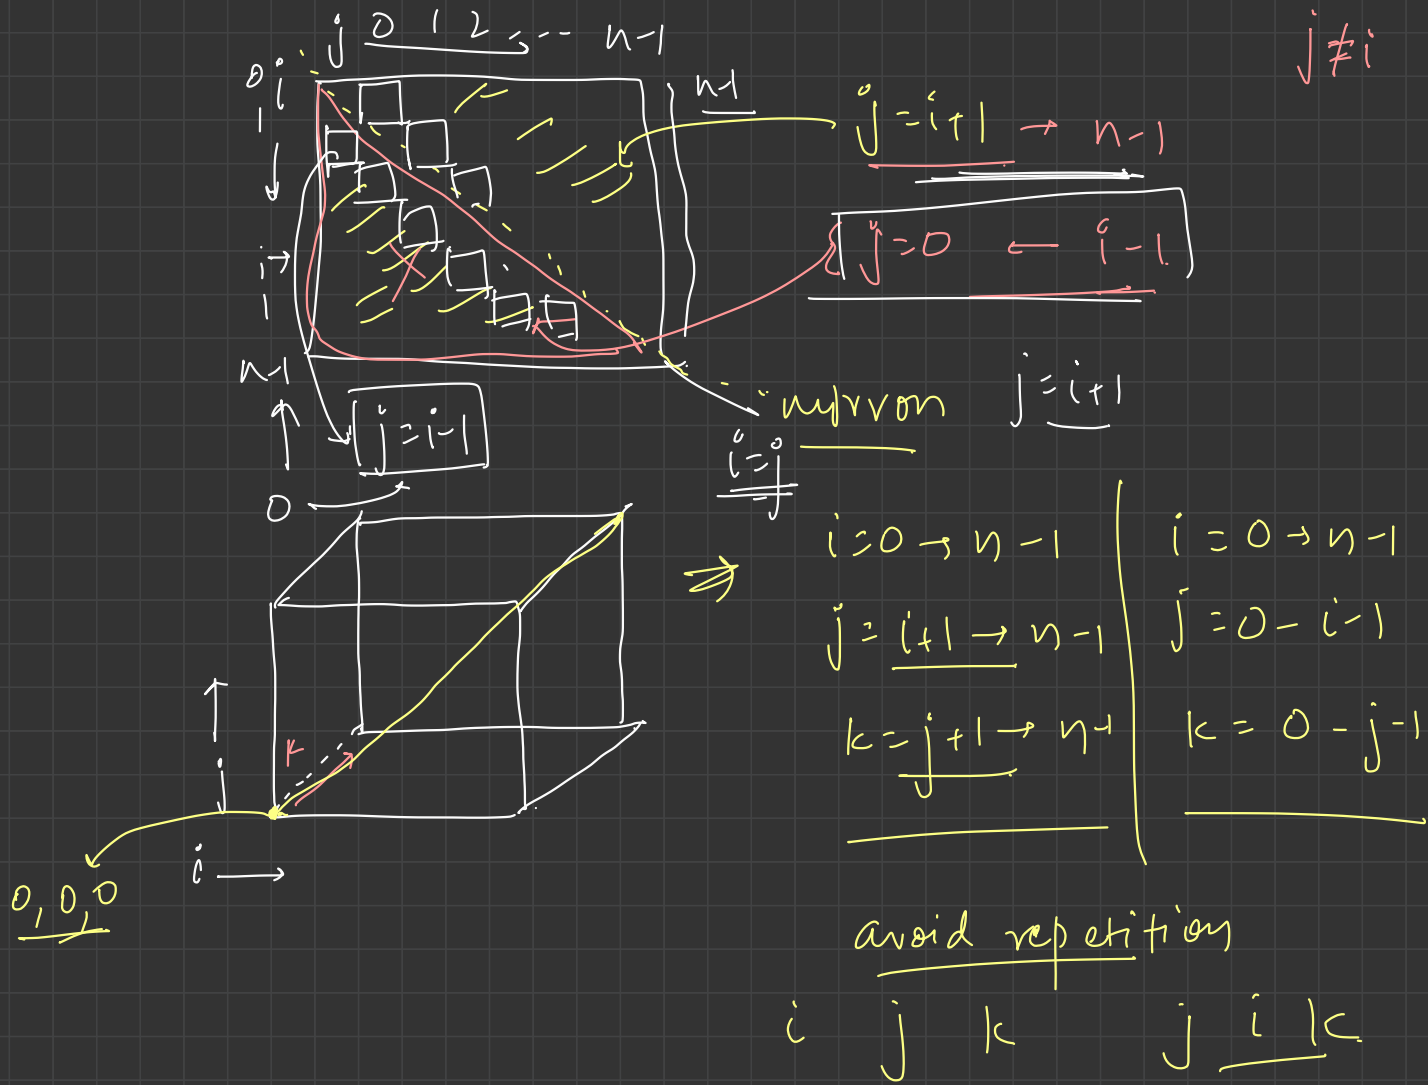 j 0 1 2 ---- n-1
j ≠ i
0 i
1
n-1
j = i+1 → n-1
j = 0 ← i-1
i →
n-1
j = i-1
mirron
j = i+1
i = j
0
i = 0 → n-1
j = i+1 → n-1
k = j+1 → n-1
i = 0 → n-1
j = 0 - i-1
k = 0 - j-1
k
j
i →
0, 0, 0
avoid repetition
i j k
j i k